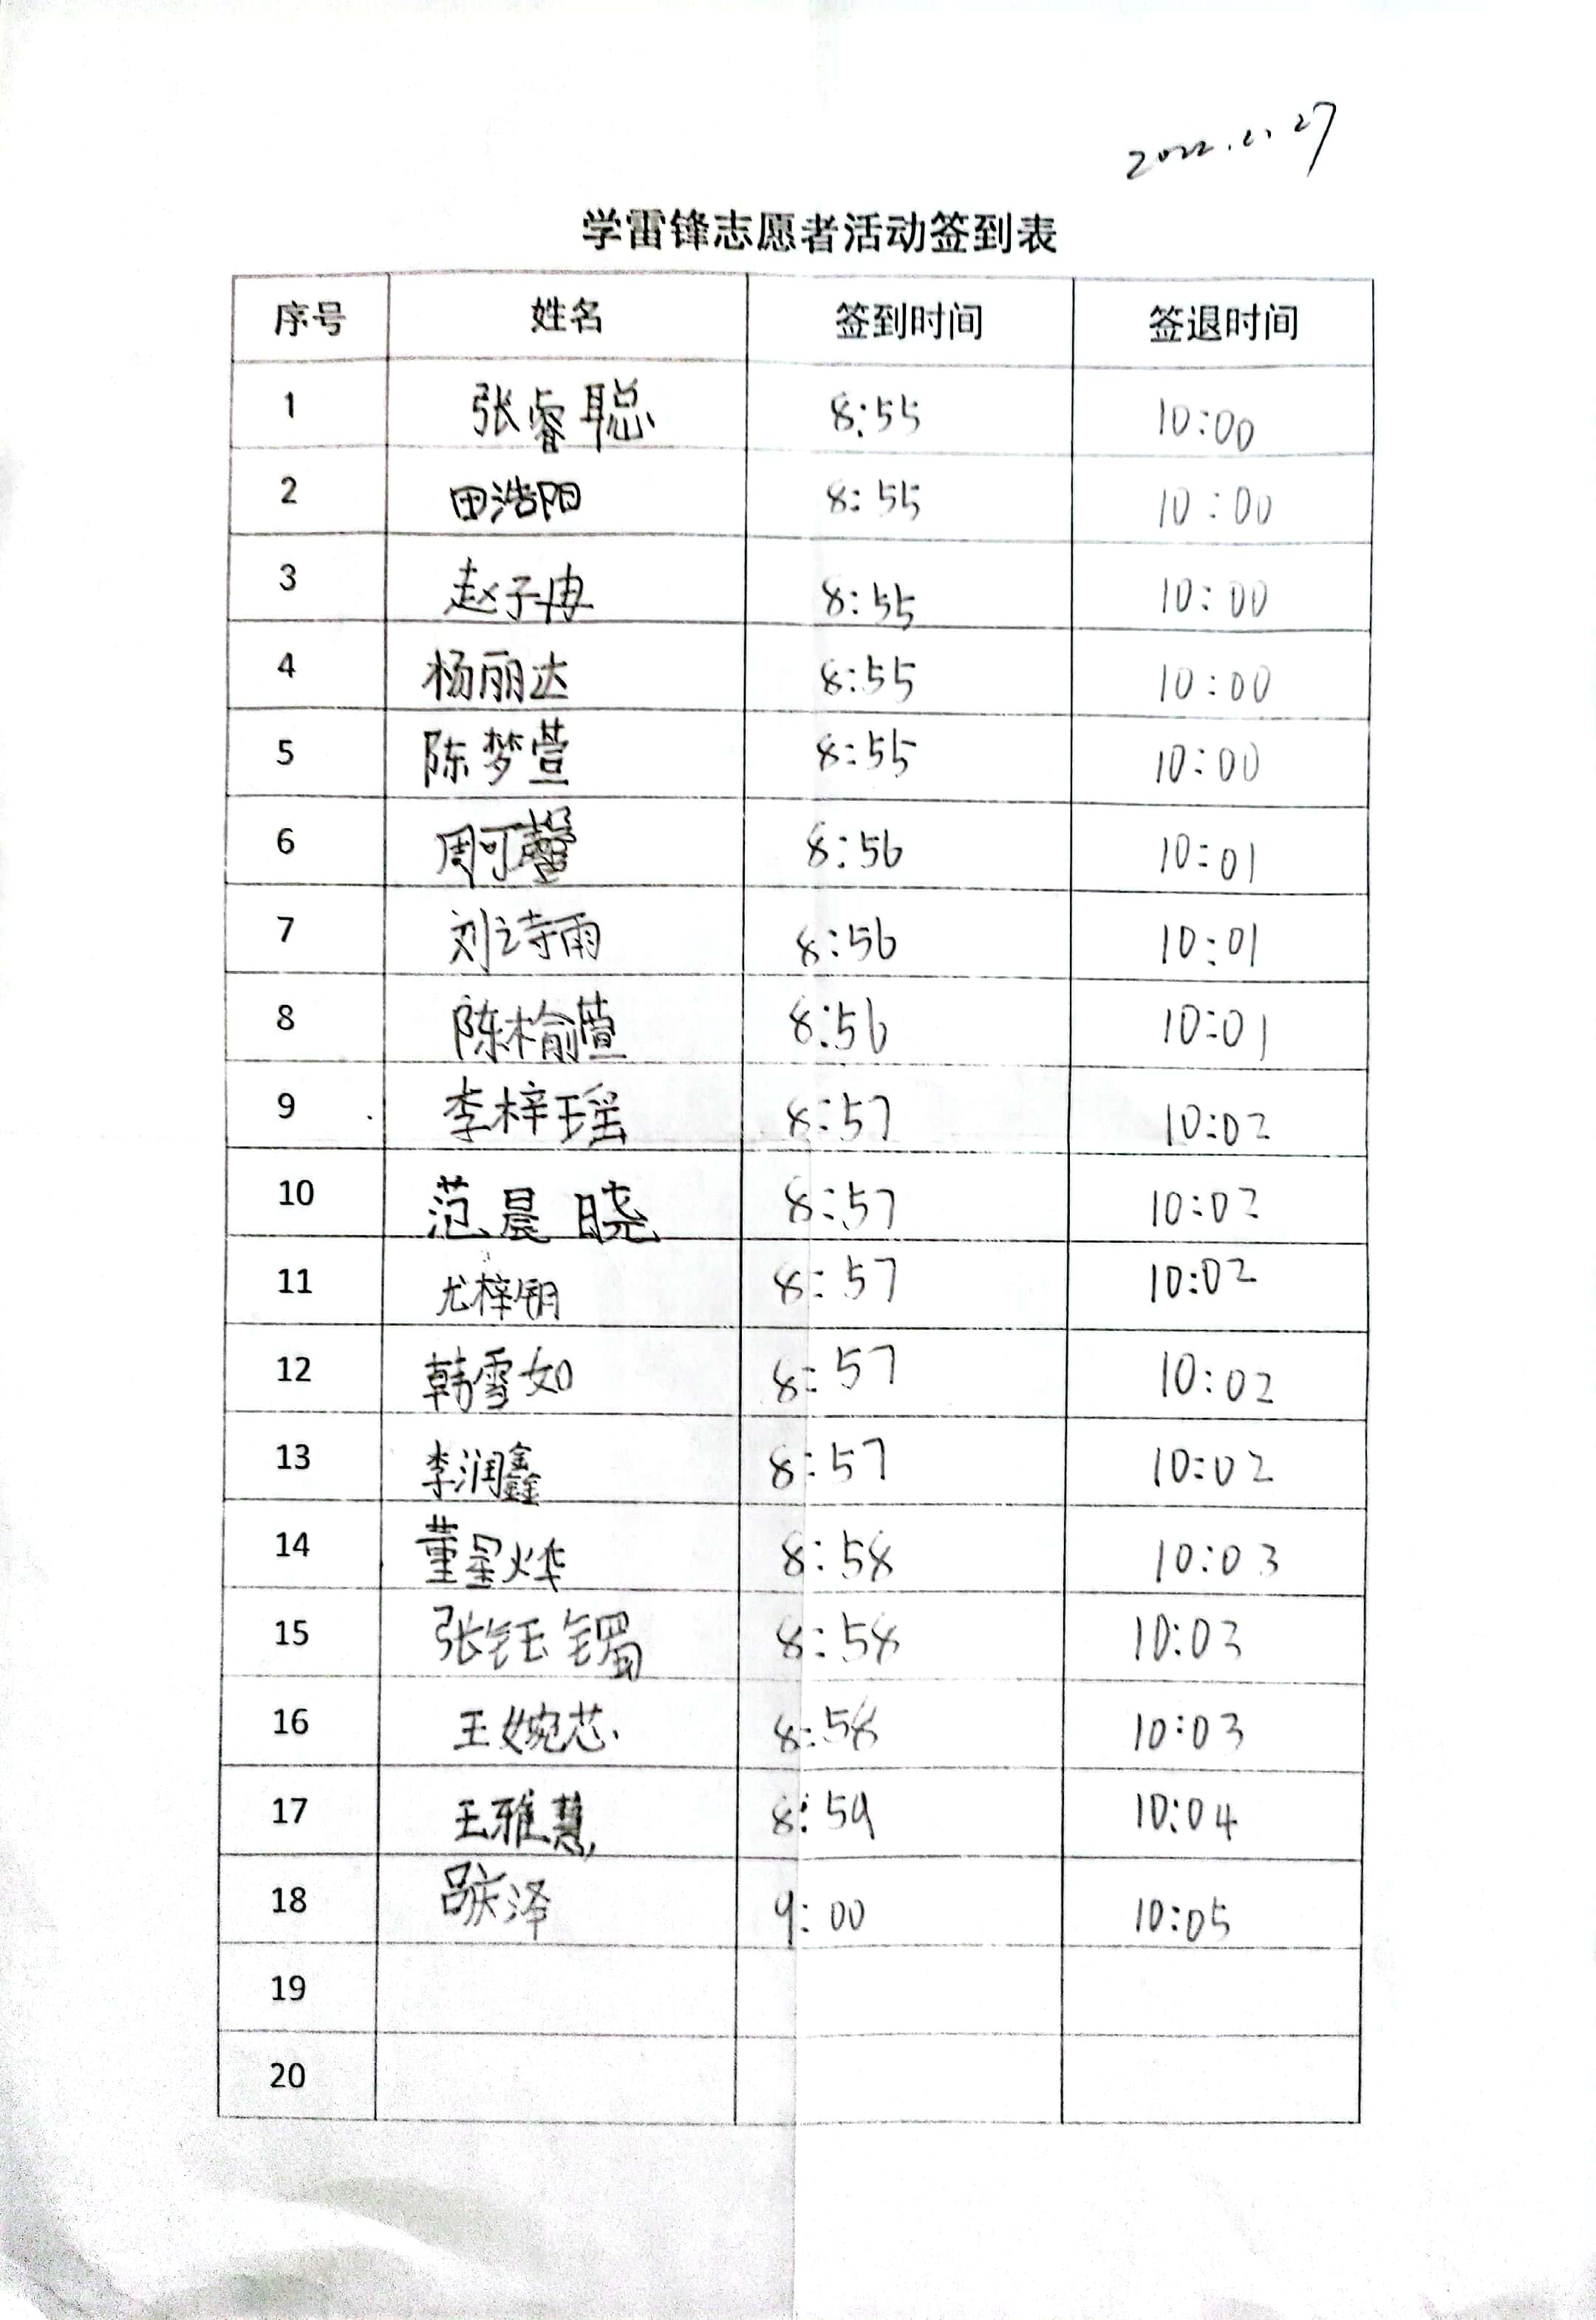 2022.2.27
学雷锋志愿者活动签到表
序号 姓名 签到时间 签退时间
1 张睿聪 8:55 10:00
2 田浩阳 8:55 10:00
3 赵子冉 8:55 10:00
4 杨丽达 8:55 10:00
5 陈梦萱 8:55 10:00
6 周可馨 8:56 10:01
7 刘诗雨 8:56 10:01
8 陈榆萱 8:56 10:01
9 李梓瑶 8:57 10:02
10 范晨晓 8:57 10:02
11 尤梓钥 8:57 10:02
12 韩雪如 8:57 10:02
13 李润鑫 8:57 10:02
14 董星烨 8:58 10:03
15 张钰镯 8:58 10:03
16 王婉芯 8:58 10:03
17 王雅慧 8:59 10:04
18 吕庆泽 9:00 10:05
19
20